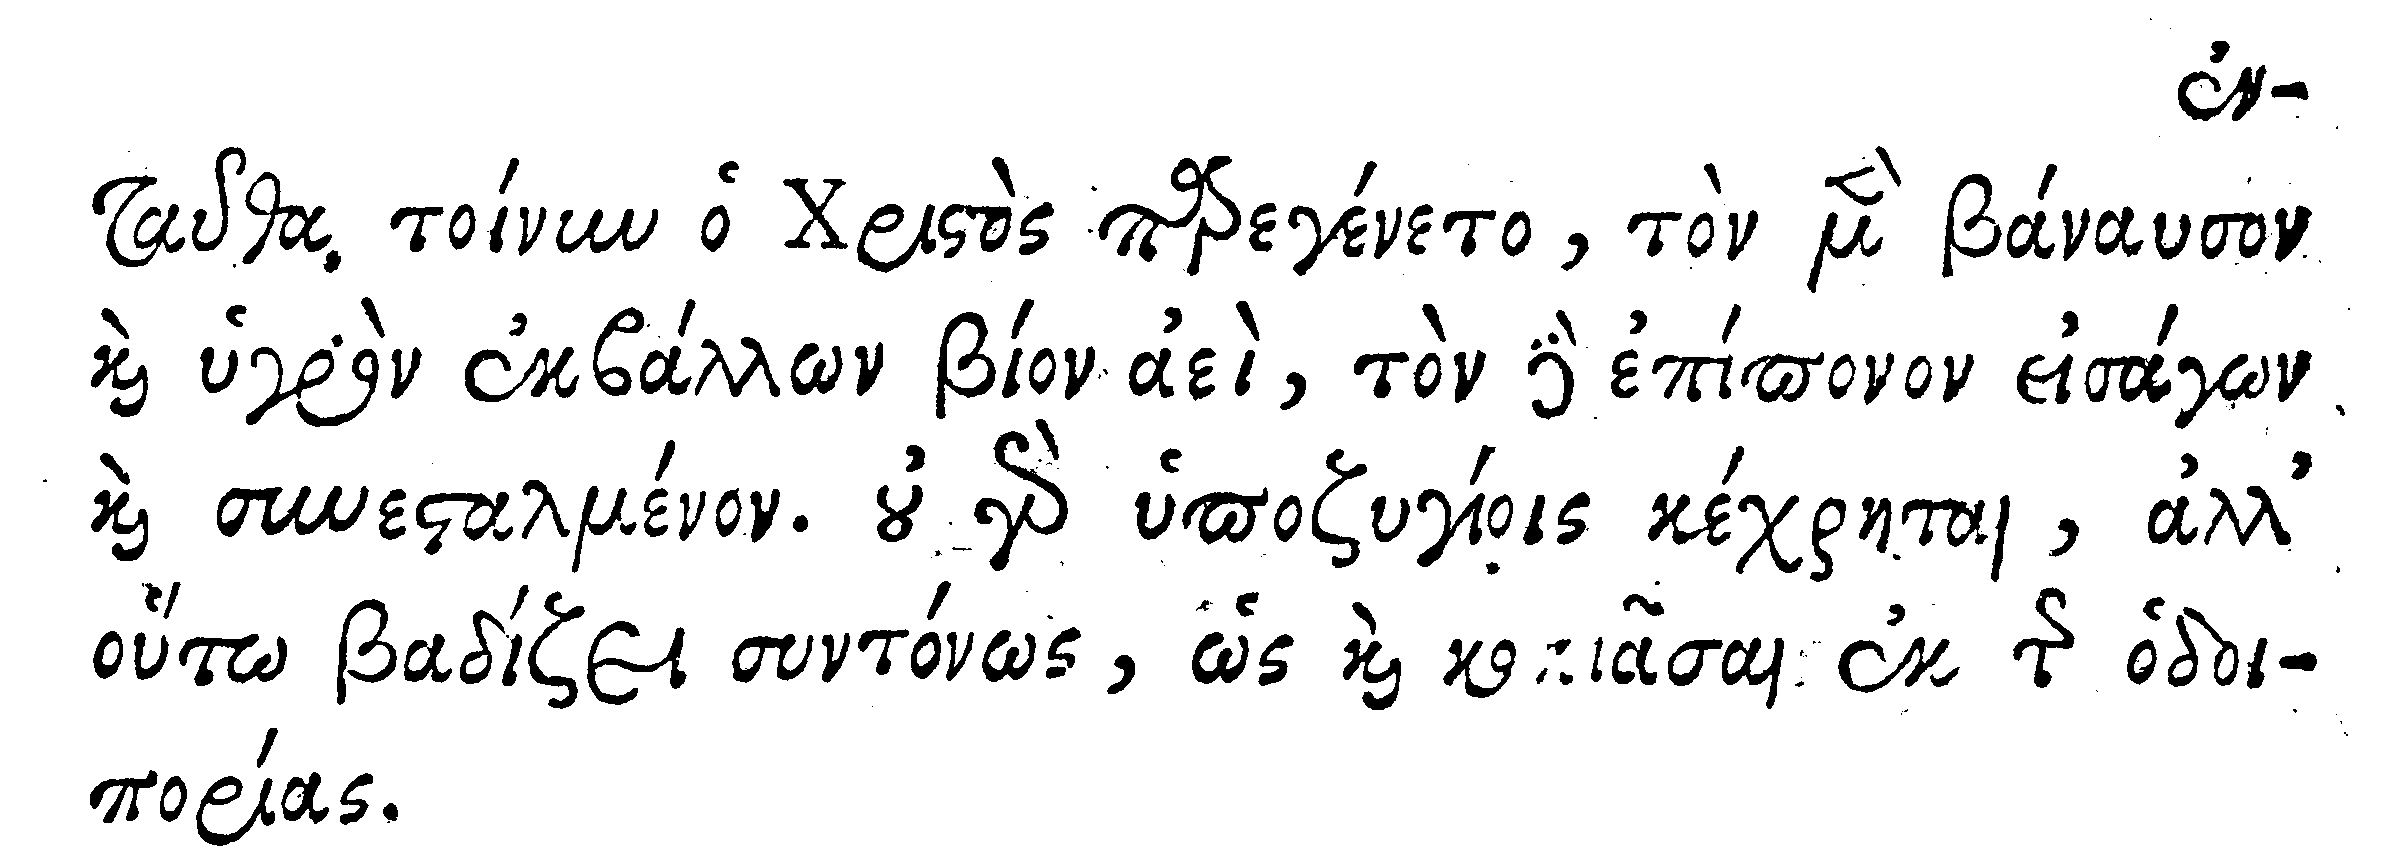 ἐν-
ταῦθα τοίνυν ὁ Χριστὸς παρεγένετο, τὸν μὲν βάναυσον
καὶ ὑγρὸν ἐκβάλλων βίον ἀεὶ, τὸν δὲ ἐπίπονον εἰσάγων
καὶ συνεσταλμένον. οὐ γὰρ ὑποζυγίοις κέχρηται, ἀλλ’
οὕτω βαδίζει συντόνως, ὡς καὶ κοπιᾶσαι ἐκ τῆς ὁδοι-
πορίας.